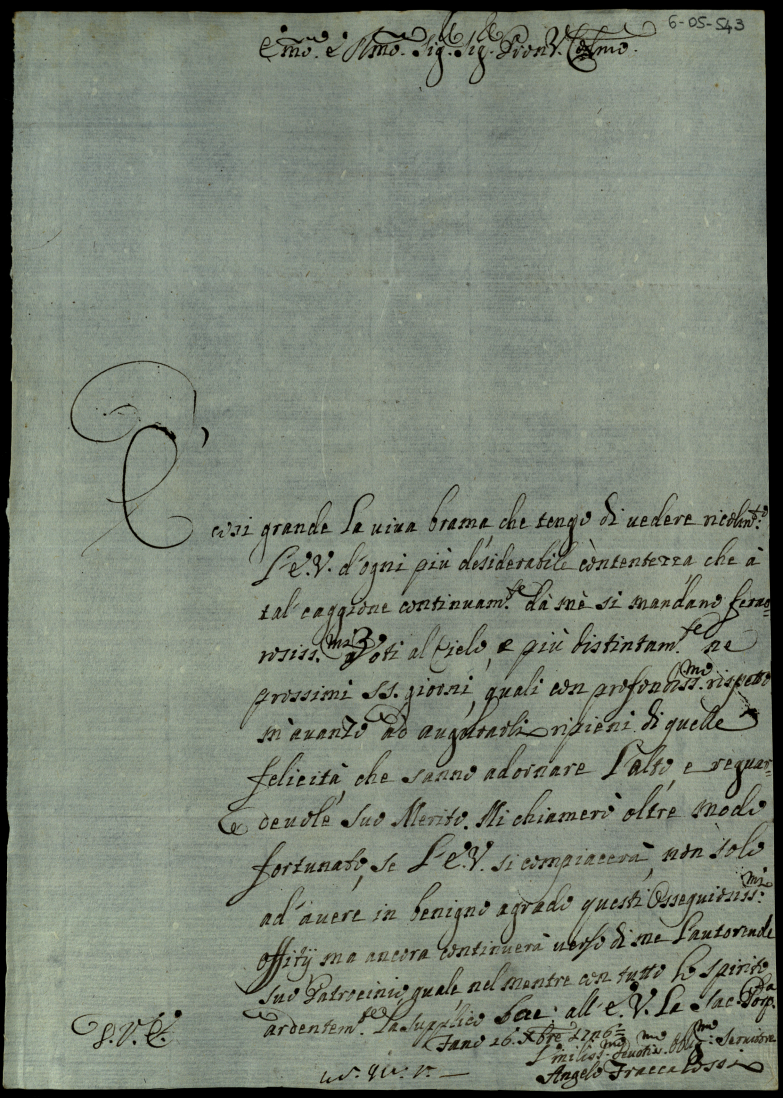 6-05-543
E.mo e R.mo Sig. Sig. Pron. Col.mo
È
cosi grande la viva brama, che tengo di vedere ricolm.to
l'E.V. d'ogni più desiderabile contentezza che à
tal caggione continuam.te da mè si mandano fervo=
rosiss.mi Voti al Cielo, e più distintam.te ne
prossimi SS. giorni, quali con profondiss.mo rispetto
m'avanzo ad augurarli ripieni di quelle
felicità, che sanno adornare l'alto, e reguar=
devole suo Merito. Mi chiamerò oltre modo
fortunato, se l'E.V. si compiacerà, non solo
ad'avere in benigno agrado questi Ossequiosiss.mi
offitij ma ancora continuerà verso di me l'autorevole
suo Patrocinio, quale, nel mentre con tutto lo spirito
ardentem.te la supplico bac: all'E.V. la Sac. Porp.a
Fano 16. Xbre 1726
S.V.E.
Umiliss.mo Devotis.mo Obb.mo Servitore
Angelo